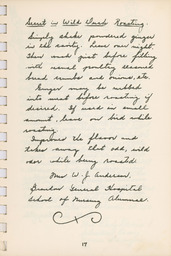 Secret in Wild Duck Roasting
Simply shake powdered ginger
in the cavity. Leave over night.
Then wash just before filling
with usual poultry dressing
bread crumbs and onions, etc.
Ginger may be rubbed
into meat before roasting if
desired. If used in small
amount leave on bird while
roasting.
Improves the flavor and
takes away that odd, wild
odor while being roasted.
Mrs W. J. Anderson.
Brandon General Hospital
School of Nursing Alumnae.
17